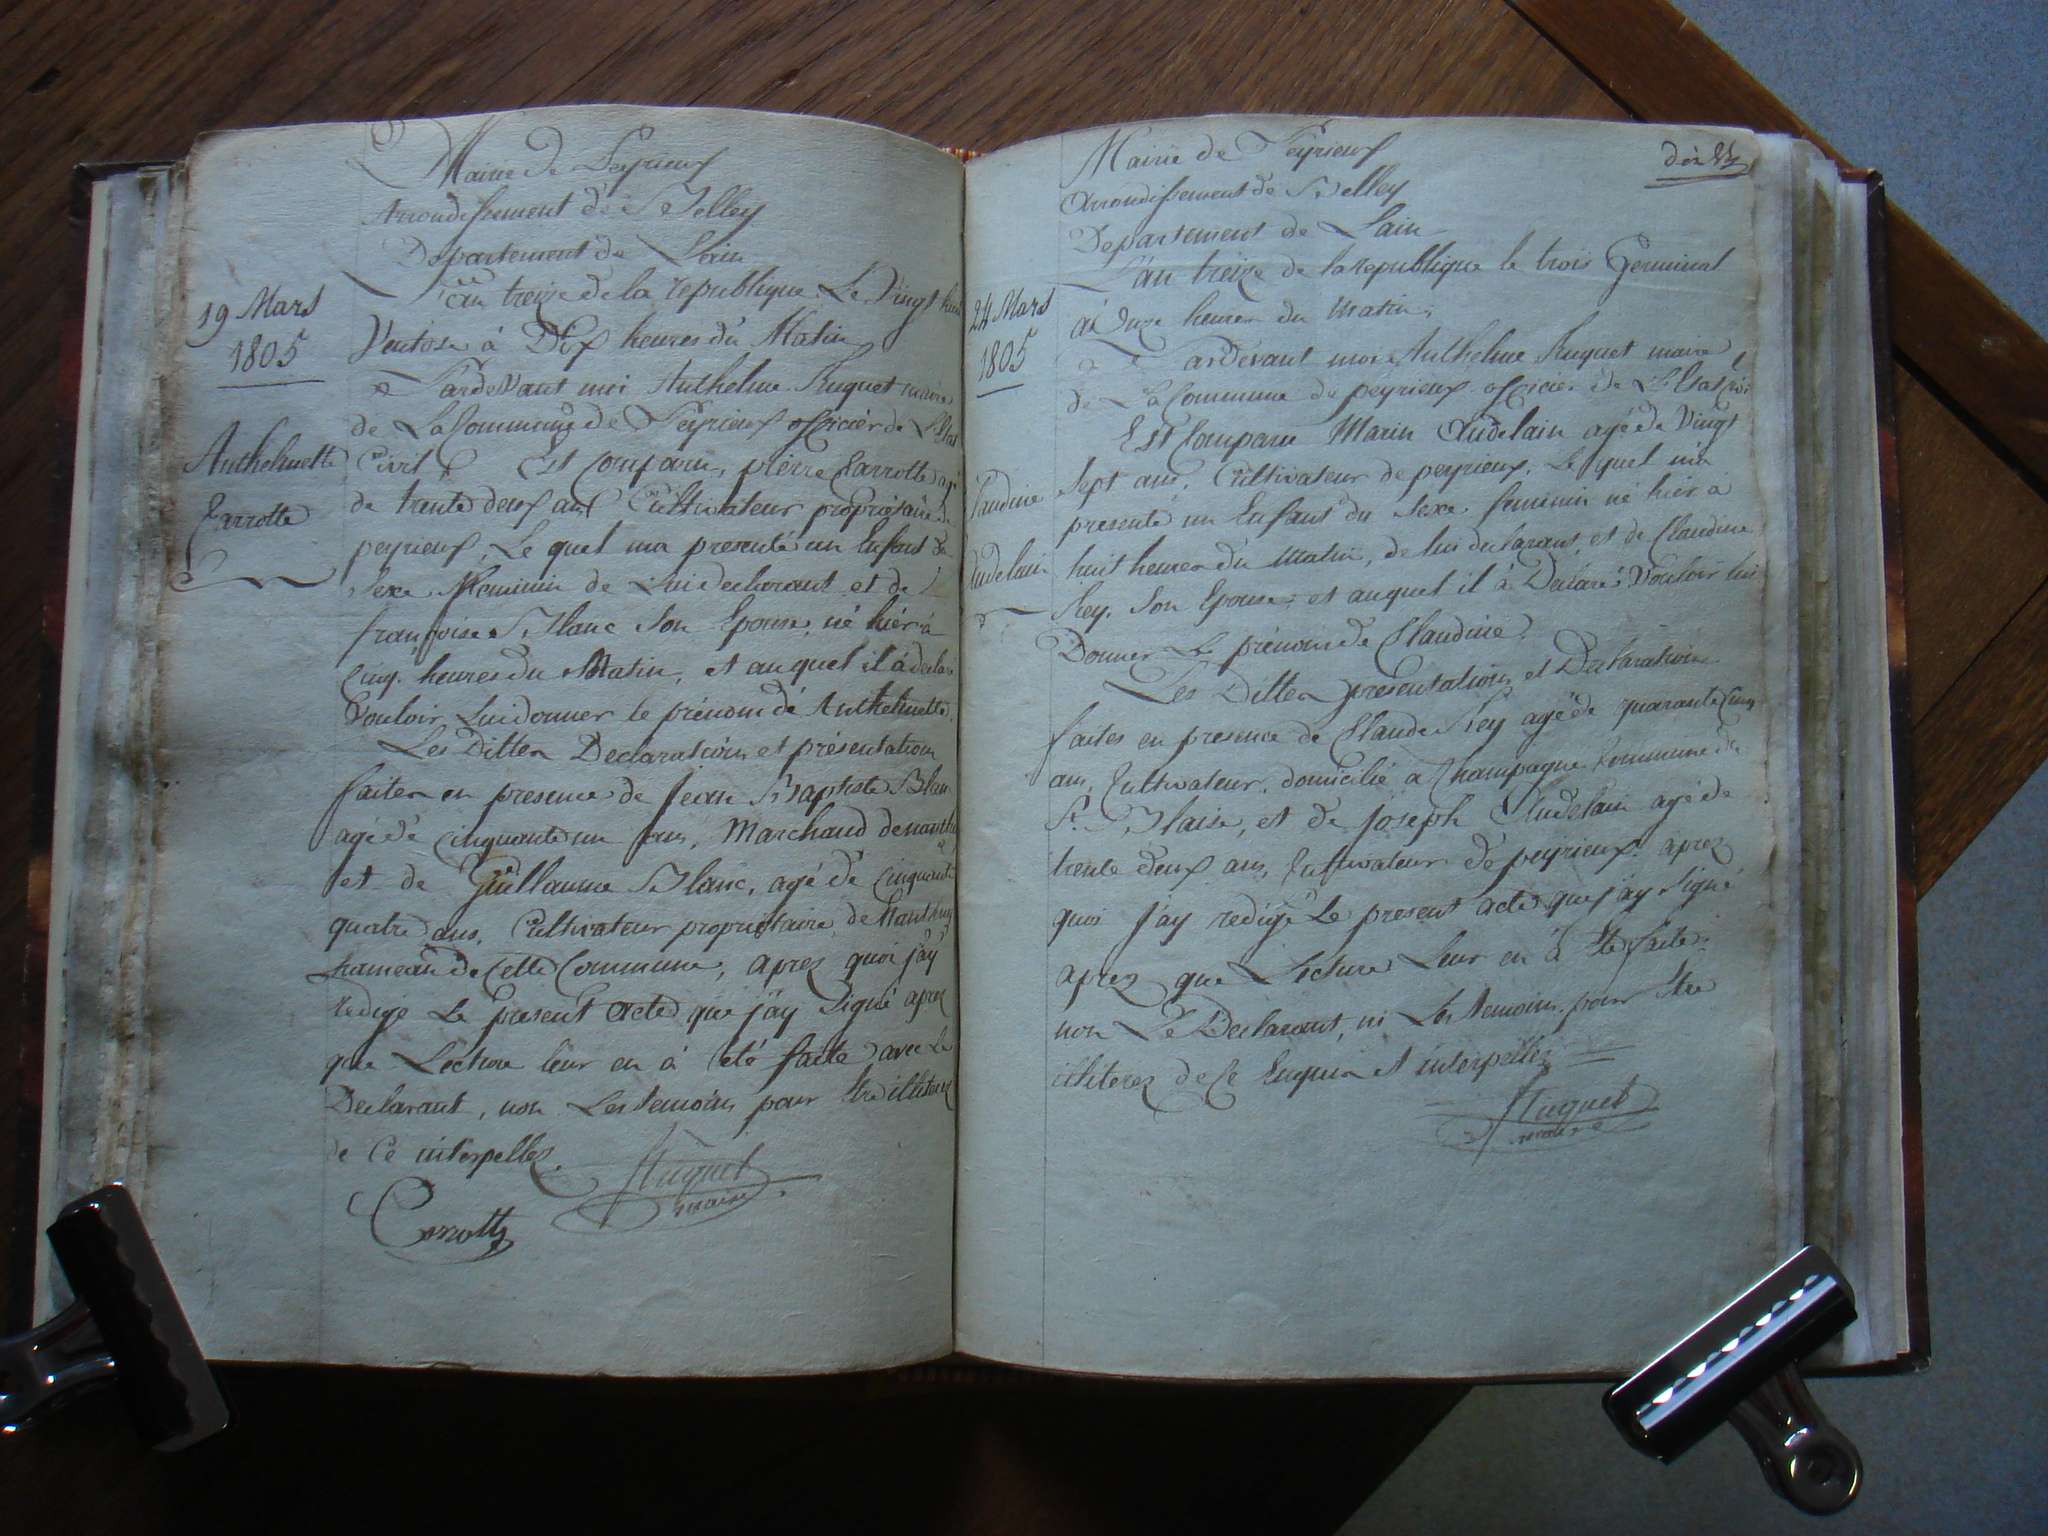 Mairie de Peyrieux
Arrondissement de Belley
Département de L'ain
L'an treize de la republique Le Vingt huit
19 Mars
1805
Ventose à Dix heures du Matin
Pardevant moi Anthelme Huguet maire
de La Commune de Peyrieux officier de L'Etat
Anthelmette
Carrotte
Civil Est Comparu, pierre Carrotte agé
de trente deux ans Cultivateur propriétaire de
peyrieux, Le quel ma presenté un Enfant du
Sexe Feminin de Lui declarant et de
françoise Blanc Son Epouse, né hier à
Cinq heures du Matin, et au quel il à declaré
Vouloir Lui donner le prénom de Anthelmette.
Les Dittes Declaration et présentation
faites en presence de Jean Baptiste Blanc
agé de Cinquante un ans, Marchand de nanthuy
et de Guillaume Blanc, agé de Cinquante
quatre ans, Cultivateur propriétaire de Nanthuy
hameau de Cette Commune, aprez quoi j'ay
redigé Le present Acte que j'ay Signé aprez
que Lecture leur en à été faite avec Le
Declarant, non Les temoins pour Etre illiterez
de Ce interpellez.
Huguet
maire
Carrotte
Mairie de Peyrieux
Arrondissement de Belley
Departement de Lain
L'an treize de la republique le trois Germinal
24 Mars
1805
à Onze heures du matin,
Pardevant moi Anthelme Huguet maire
de La Commune de peyrieux officier de L'Etat Civil
Est Comparu Marin Audelain agé de Vingt
Claudine
Audelain
Sept ans, Cultivateur de peyrieux, Le quel m'a
presenté un Enfant du Sexe feminin né hier à
huit heures du Matin, de lui declarant, et de Claudine
Rey, Son Epouse, et auquel il à Declaré Vouloir lui
Donner Le prénom de Claudine.
Les Dittes presentation et Declaration
faites en presence de Claude Rey agé de quarante Cinq
ans, Cultivateur, domicilié a Champagne Commune de
St. Blaise, et de joseph Audelain agé de
trente deux ans, Cultivateur de peyrieux. aprez
quoi j'ay redigé Le present acte que j'ay Signé
aprez que Lecture Leur en à Eté faite.
non Le Declarant, ni Les temoins pour Etre
illiterez de Ce Enquis et interpellez
Huguet
maire